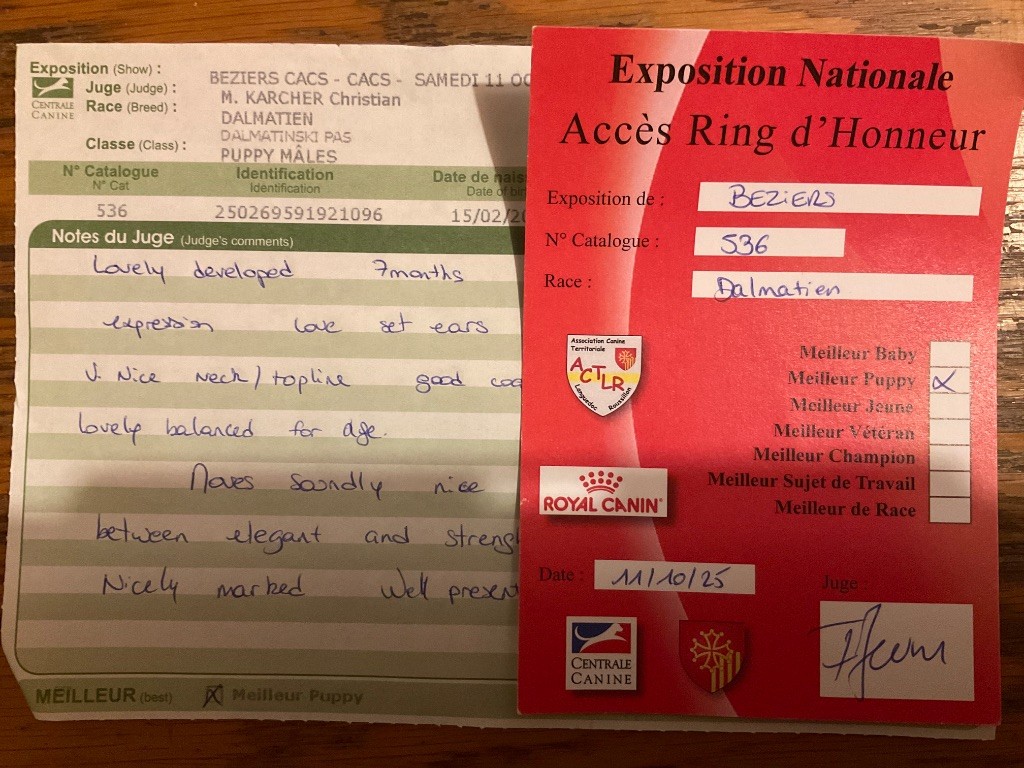 Exposition (Show) :
BEZIERS CACS - CACS - SAMEDI 11 OC
Juge (Judge) :
M. KARCHER Christian
Race (Breed) :
DALMATIEN
DALMATINSKI PAS
Classe (Class) :
PUPPY MÂLES
CENTRALE
CANINE
N° Catalogue
N° Cat
Identification
Identification
Date de nais
Date of bir
536
250269591921096
15/02/20
Notes du Juge (Judge's comments)
Lovely developed 7months
expression love set ears
V. Nice neck/topline good coa
lovely balanced for age.
Moves soundly nice
between elegant and streng
Nicely marked Well present
MEILLEUR (best) X Meilleur Puppy
Exposition Nationale
Accès Ring d'Honneur
Exposition de : BEZIERS
N° Catalogue : 536
Race : Dalmatien
Association Canine
Territoriale
ACTLR
Languedoc Roussillon
Meilleur Baby
Meilleur Puppy X
Meilleur Jeune
Meilleur Vétéran
Meilleur Champion
Meilleur Sujet de Travail
Meilleur de Race
ROYAL CANIN
Date : 11/10/25
Juge :
CENTRALE
CANINE